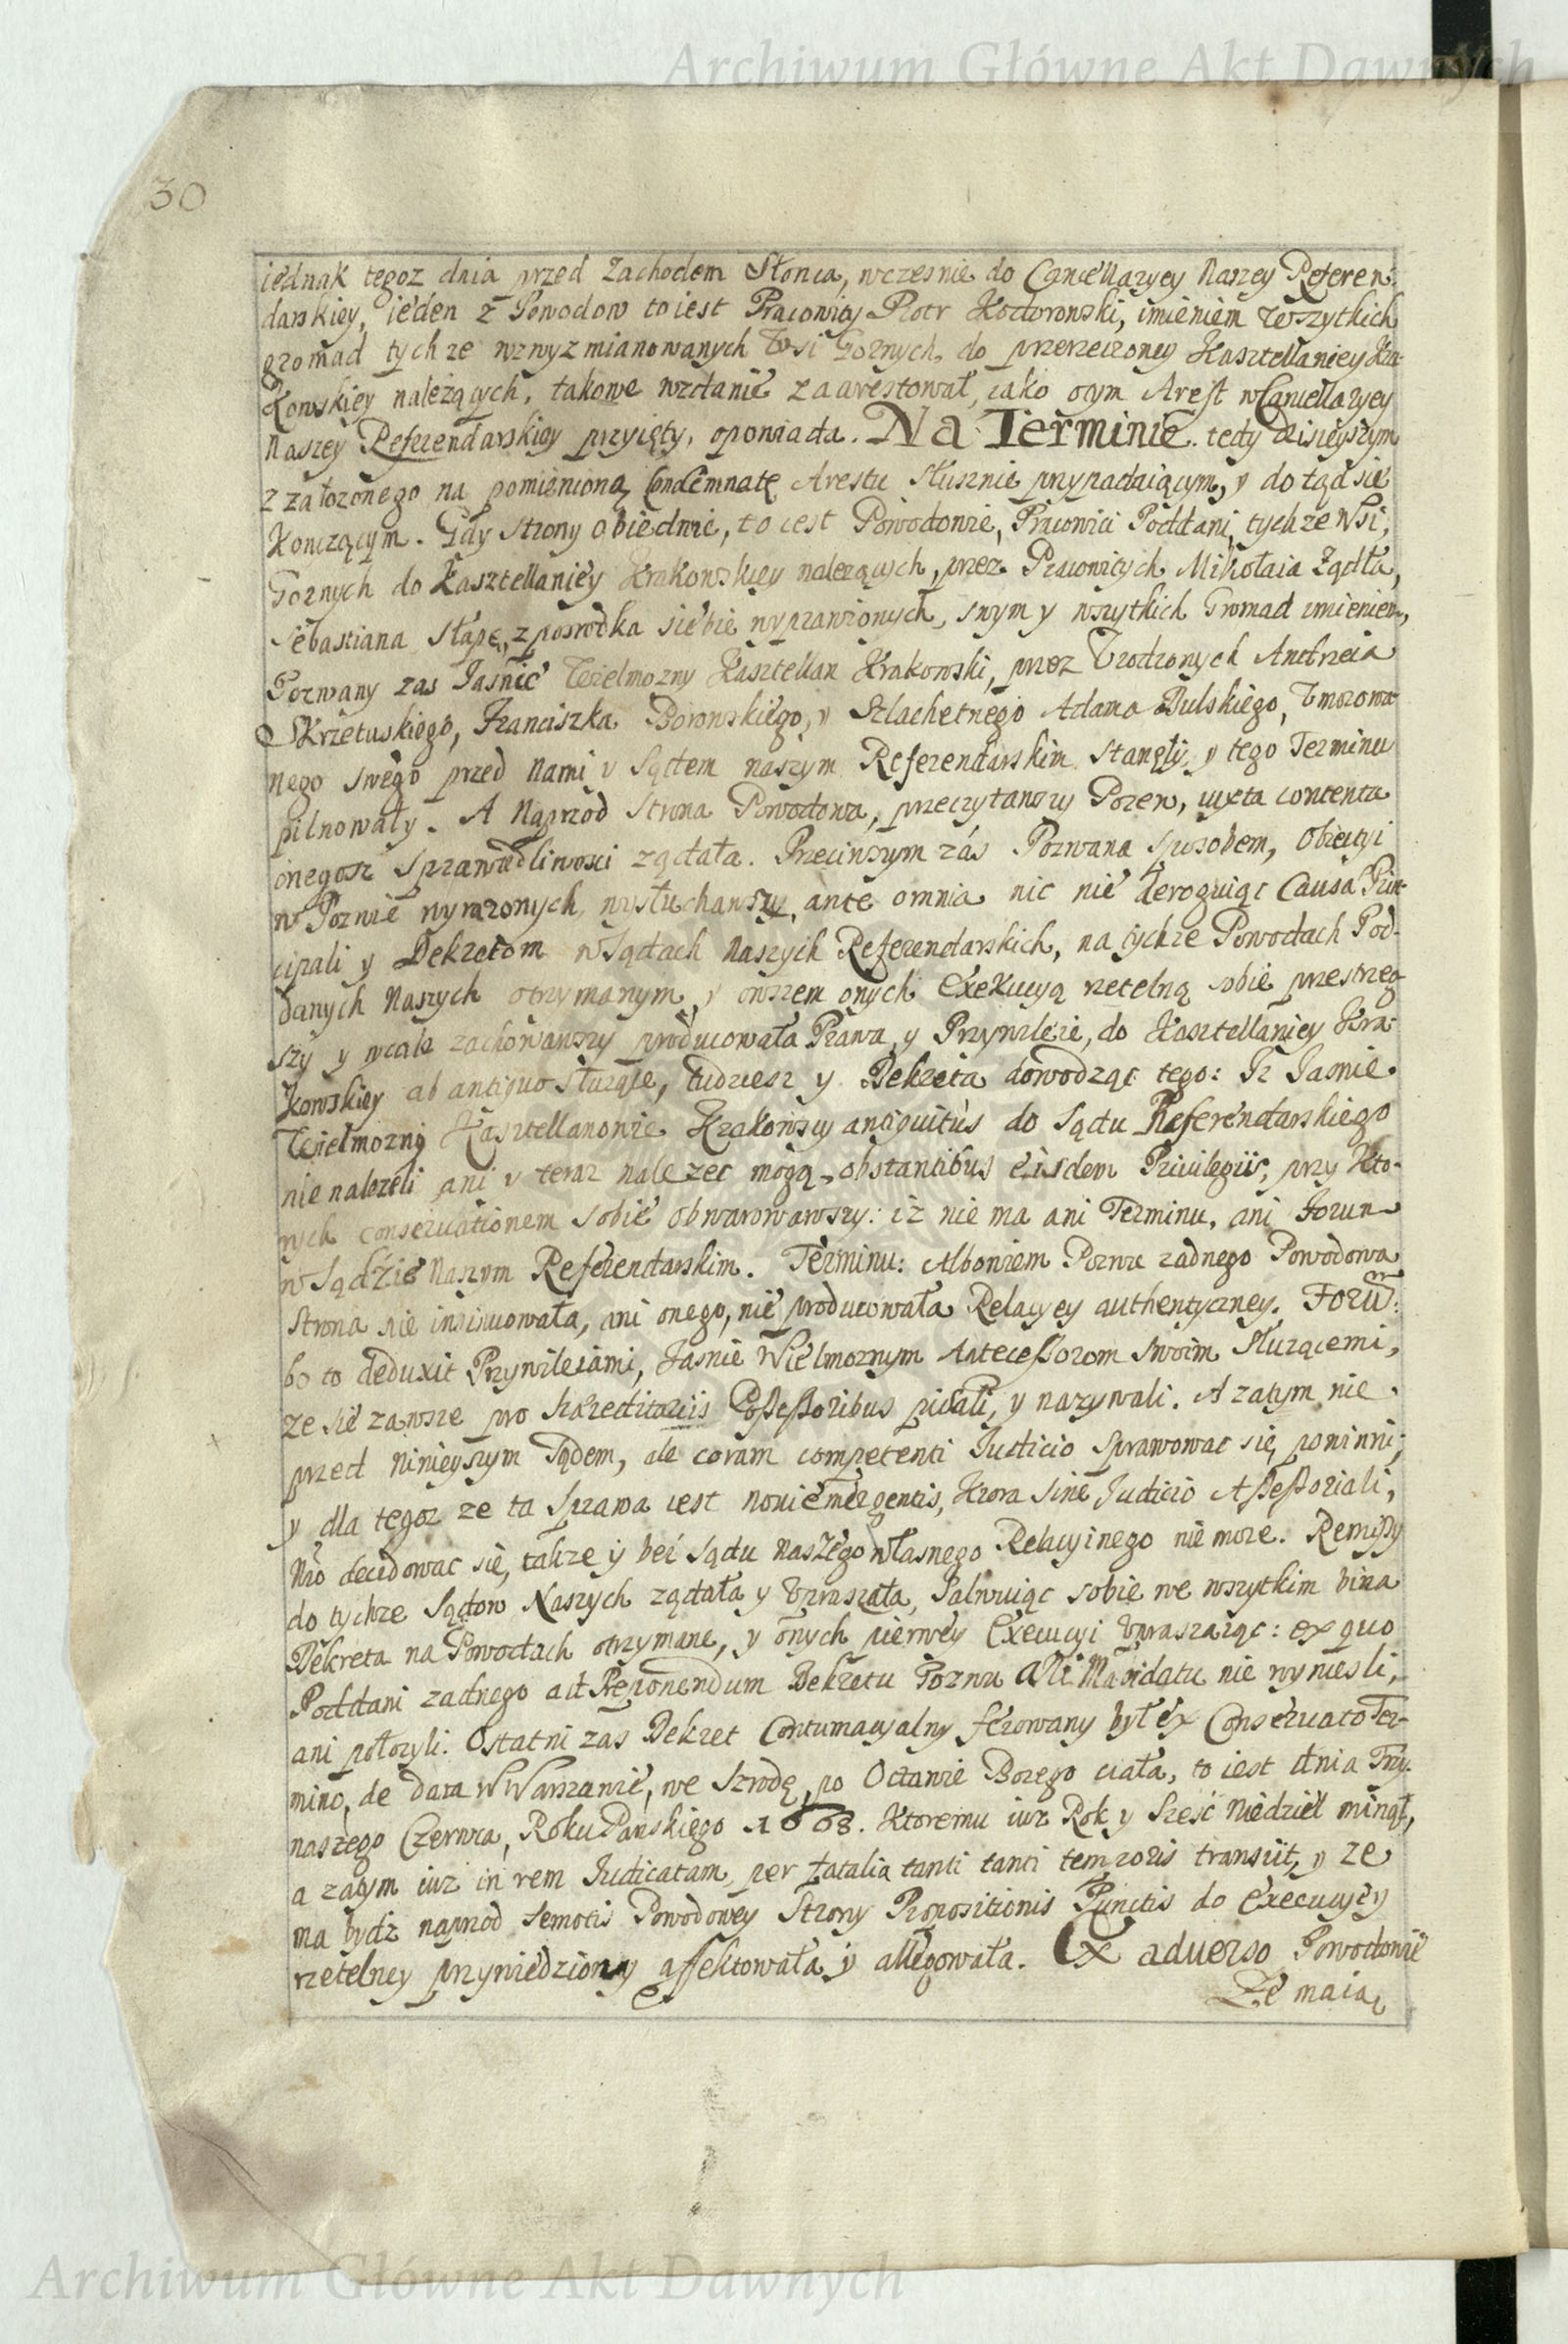 Archiwum Główne Akt Dawnych
30
iednak tegoz dnia przed Zachodem Słonca, wczesnie do Cancellaryey Naszey Referen:
darskiey, ieden z Powodow to iest Pracowity Piotr Kodoronski, imieniem Wszytkich
gromad tychze wzwyz mianowanych Wsi Gornych, do przerzeczoney Kasztellaniey Kra-
kowskiey należących, takowe wzdanie zaarestował, iako o tym Arest w Cancellaryey
Naszey Referendarskiey przyięty, opowiada. Na Terminie tedy dzisieyszym
z założonego na pomienioną Condemnatę Arestu słusznie przypadaiącym, y do tąd się
Konczącym. Gdy Strony obiedwie, to iest Powodowie, Pracowici Poddani tychze Wsi,
Gornych do Kasztellaniey Krakowskiey nalezących, przez Pracowitych Mikołaia Ządła,
Sebastiana Słapę, z posrodka siebie wyprawionych, swym y wszytkich Gromad imieniem,
Pozwany zas Jasnie Wielmozny Kasztellan Krakowski, przez Urodzonych Andrzeia
Skrzetuskiego, Franciszka Borowskiego, y Szlachetnego Adama Bulskiego, Umocowa-
nego swego przed Nami y Sądem naszym Referendarskim Stanęły, y tego Terminu
pilnowały. A Naprzod Strona Powodowa, przeczytawszy Pozew, iuxta contenta
onegosz sprawiedliwosci ządała. Przeciwnym zás Pozwana sposobem, Obiectyi
w Pozwie wyrazonych wysłuchawszy, ante omnia nic nie deroguiąc Causa Prin-
cipali y Dekretom w Sądach Naszych Referendarskich, na tychze Powodach Pod-
danych Naszych otrzymanym, y owszem onych Exekucyą rzetelną sobie przestrzeg-
szy y wcale zachowawszy producowała Prawa, y Przywileie, do Kasztellaniey Kra-
kowskiey ab antiquo służące, tudziesz y Dekreta dowodząc tego: Iz Jasnie
Wielmozni Kasztellanowie Krakowscy antiquitùs do Sądu Referendarskiego
nie nalezeli ani y teraz nalezec mogą, obstantibus eisdem Privilegiis, przy Kto-
rych conservationem sobie obwarowawszy: iż nie ma ani Terminu, ani Forum
w Sądzie Naszym Referendarskim. Terminu: Albowiem Pozwu zadnego Powodowa
Strona nie insinuowała, ani onego, nie producowała Relacyey authentyczney. Forum:
bo to deduxit Przywileiami, Jasnie Wielmoznym Antecessorom Swoim Służącemi,
ze sie zawsze pro haereditariis Possessoribus pisali, y nazywali. A zatym nie
przed ninieyszym Sądem, ale coram competenti Iudicio sprawowac się powinni;
y dla tegoz ze ta Sprawa iest noviemergentis, Ktora sine Judicio Assessoriali,
Nro decidowac się, takze y bez Sądu Naszego własnego Relacyinego nie moze. Remissy
do tychze Sądow Naszych ządała y Upraszała, Salwuiąc sobie we wszytkim bina
Dekreta na Powodach otrzymane, y onych pierwey Execucyi Upraszaiąc: ex quo
Poddani zadnego ad Reponendum Dekretu Pozwu ani Mandatu nie wyniesli,
ani położyli. Ostatni zas Dekret Contumacyalny ferowany był ex Conservato Ter-
mino, de data w Warszawie, we Szrodę, po Octawie Bozego ciała, to iest dnia Trzy-
naszego Czerwca, Roku Pańskiego 1668. Ktoremu iuz Rok y Szesć Niedziel minął,
a zatym iuz in rem Iudicatam, per fatalia tanti tanti temporis transiit, y ze
ma bydz naprzod semotis Powodowey Strony Propositionis Punctis do Execucyey
rzetelney przywiedziony affektowała y allegowała. Ex adverso Powodowie
Ze maią
Archiwum Główne Akt Dawnych